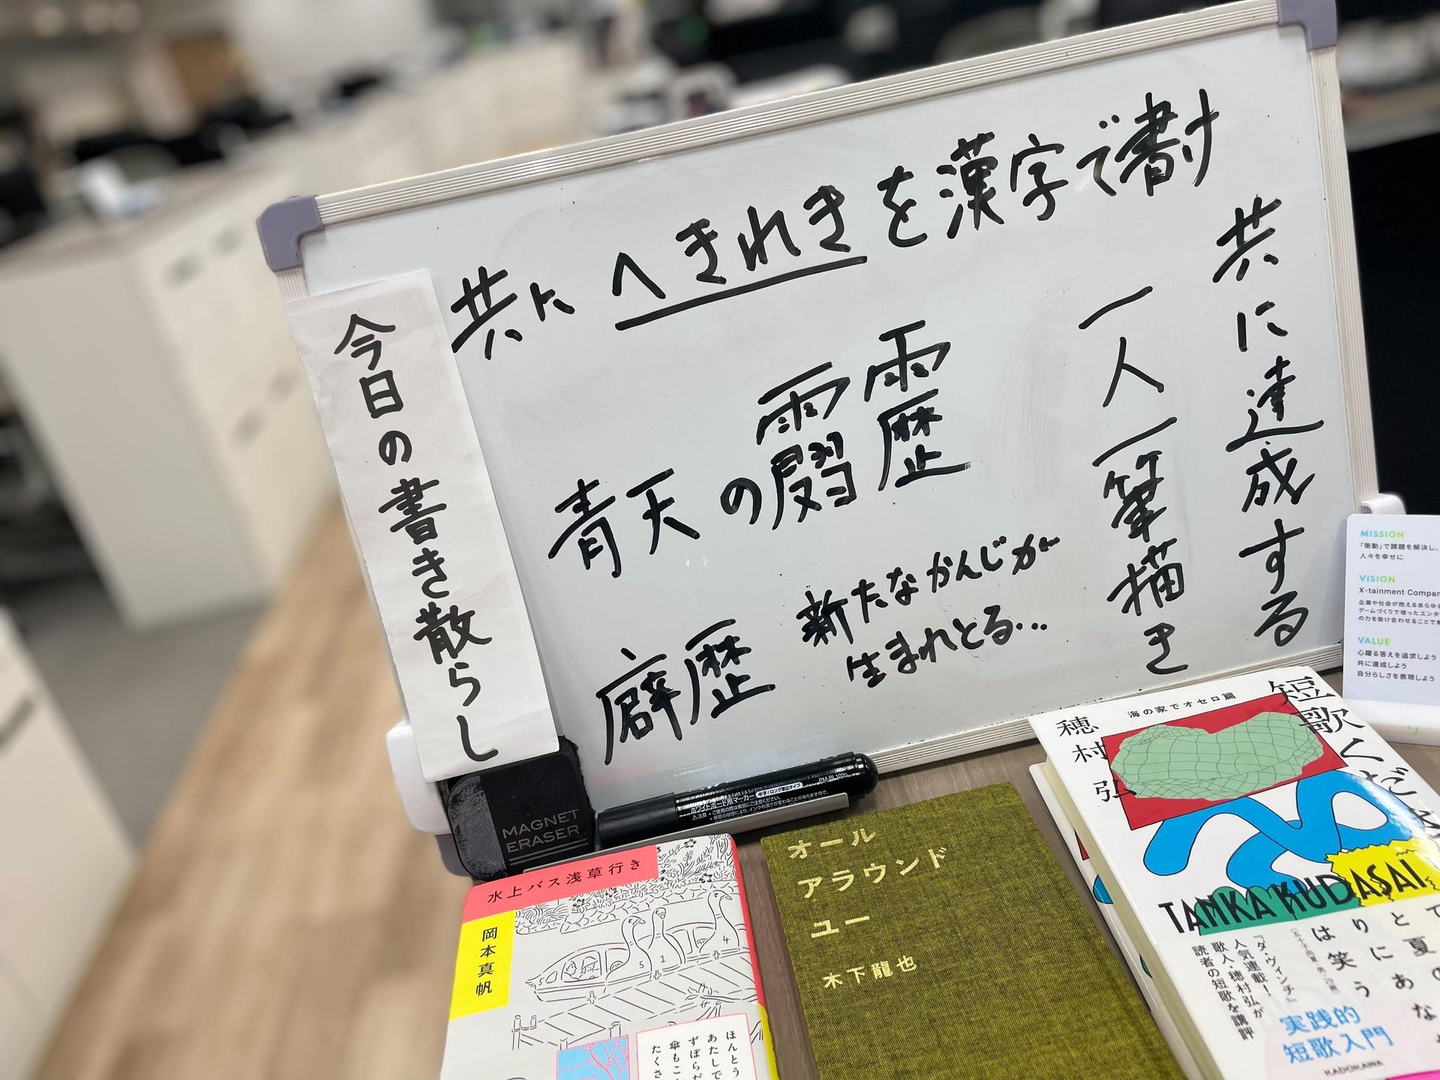 今日の書き散らし
共に へきれき を漢字で書け
青天の
歴
新たなかんじが
生まれとる…
共に達成する
一人一筆描き
MAGNET
ERASER
ホワイトボード用マーカー
水上バス浅草行き
岡本真帆
ほんとう
あたしで
ずぼらだ
傘もこ
たくさ
オール
アラウンド
ユー
木下龍也
短歌ください
海の家でオセロ篇
穂村弘
TANKA KUDASAI
『ダ・ヴィンチ』
人気連載!
歌人・穂村弘が
読者の短歌を講評
実践的
短歌入門
KADOKAWA
MISSION
「衝動」で課題を解決し、
人々を幸せに
VISION
X-tainment Compan
企業や社会が抱えるあらゆる
ゲームづくりで培ったエンタ
の力を掛け合わせることで
VALUE
心躍る答えを追求しよう
共に達成しよう
自分らしさを表現しよう